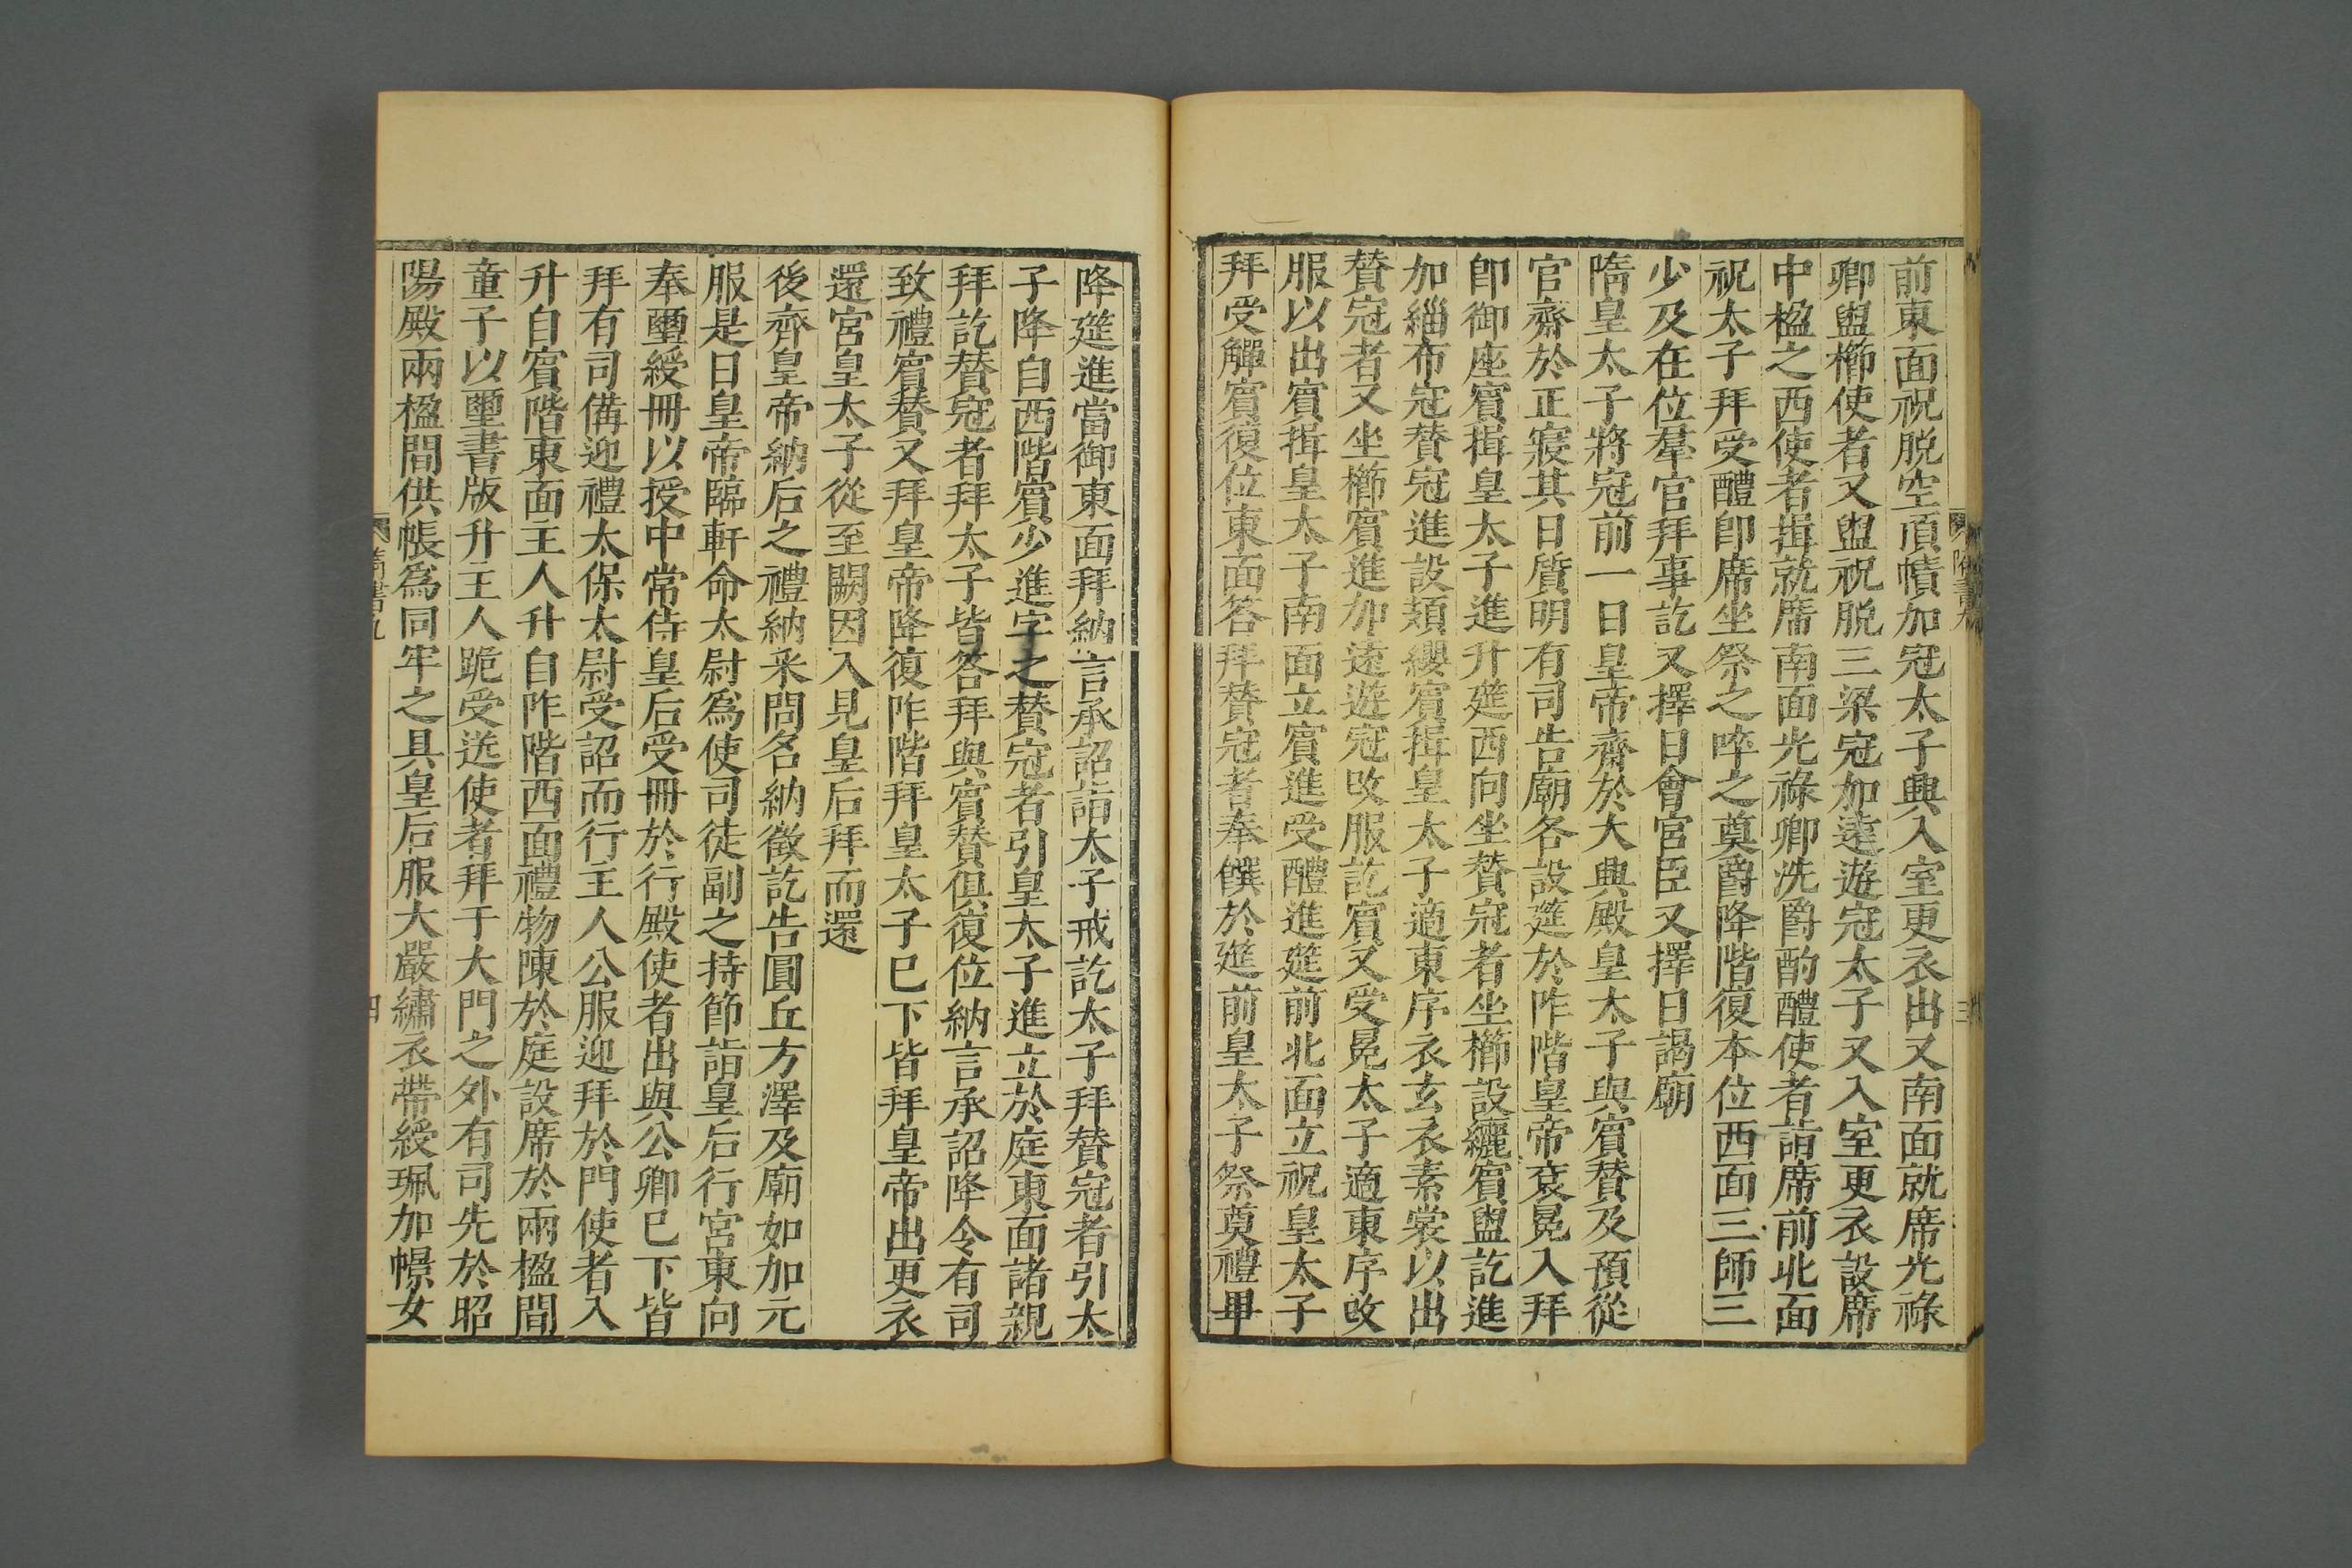 前東面祝脱空頂幘加冠太子興入室更衣出又南面就席光祿
卿盥櫛使者又盥祝脱三梁冠加遠遊冠太子又入室更衣設席
中楹之西使者揖就席南面光祿卿洗爵酌醴使者詣席前北面
祝太子拜受醴卽席坐祭之啐之奠爵降階復本位西面三師三
少及在位羣官拜事訖又擇日會宮臣又擇日謁廟
隋皇太子將冠前一日皇帝齋於大興殿皇太子與賓贊及預從
官齋於正寢其日質明有司告廟各設筵於阼階皇帝衮冕入拜
卽御座賓揖皇太子進升筵西向坐贊冠者坐櫛設纚賓盥訖進
加緇布冠贊冠進設頍纓賓揖皇太子適東序衣玄衣素裳以出
贊冠者又坐櫛賓進加遠遊冠改服訖賓又受冕太子適東序改
服以出賓揖皇太子南面立賓進受醴進筵前北面立祝皇太子
拜受觶賓復位東面答拜贊冠者奉饌於筵前皇太子祭奠禮畢
隋書九
三
降筵進當御東面拜納言承詔詣太子戒訖太子拜贊冠者引太
子降自西階賓少進字之贊冠者引皇太子進立於庭東面諸親
拜訖贊冠者拜太子皆答拜與賓贊俱復位納言承詔降令有司
致禮賓贊又拜皇帝降復阼階拜皇太子已下皆拜皇帝出更衣
還宮皇太子從至闕因入見皇后拜而還
後齊皇帝納后之禮納采問名納徵訖告圓丘方澤及廟如加元
服是日皇帝臨軒命太尉爲使司徒副之持節詣皇后行宮東向
奉璽綬冊以授中常侍皇后受冊於行殿使者出與公卿已下皆
拜有司備迎禮太保太尉受詔而行主人公服迎拜於門使者入
升自賓階東面主人升自阼階西面禮物陳於庭設席於兩楹間
童子以璽書版升主人跪受送使者拜于大門之外有司先於昭
陽殿兩楹間供帳爲同牢之具皇后服大嚴繡衣帶綬珮加幜女